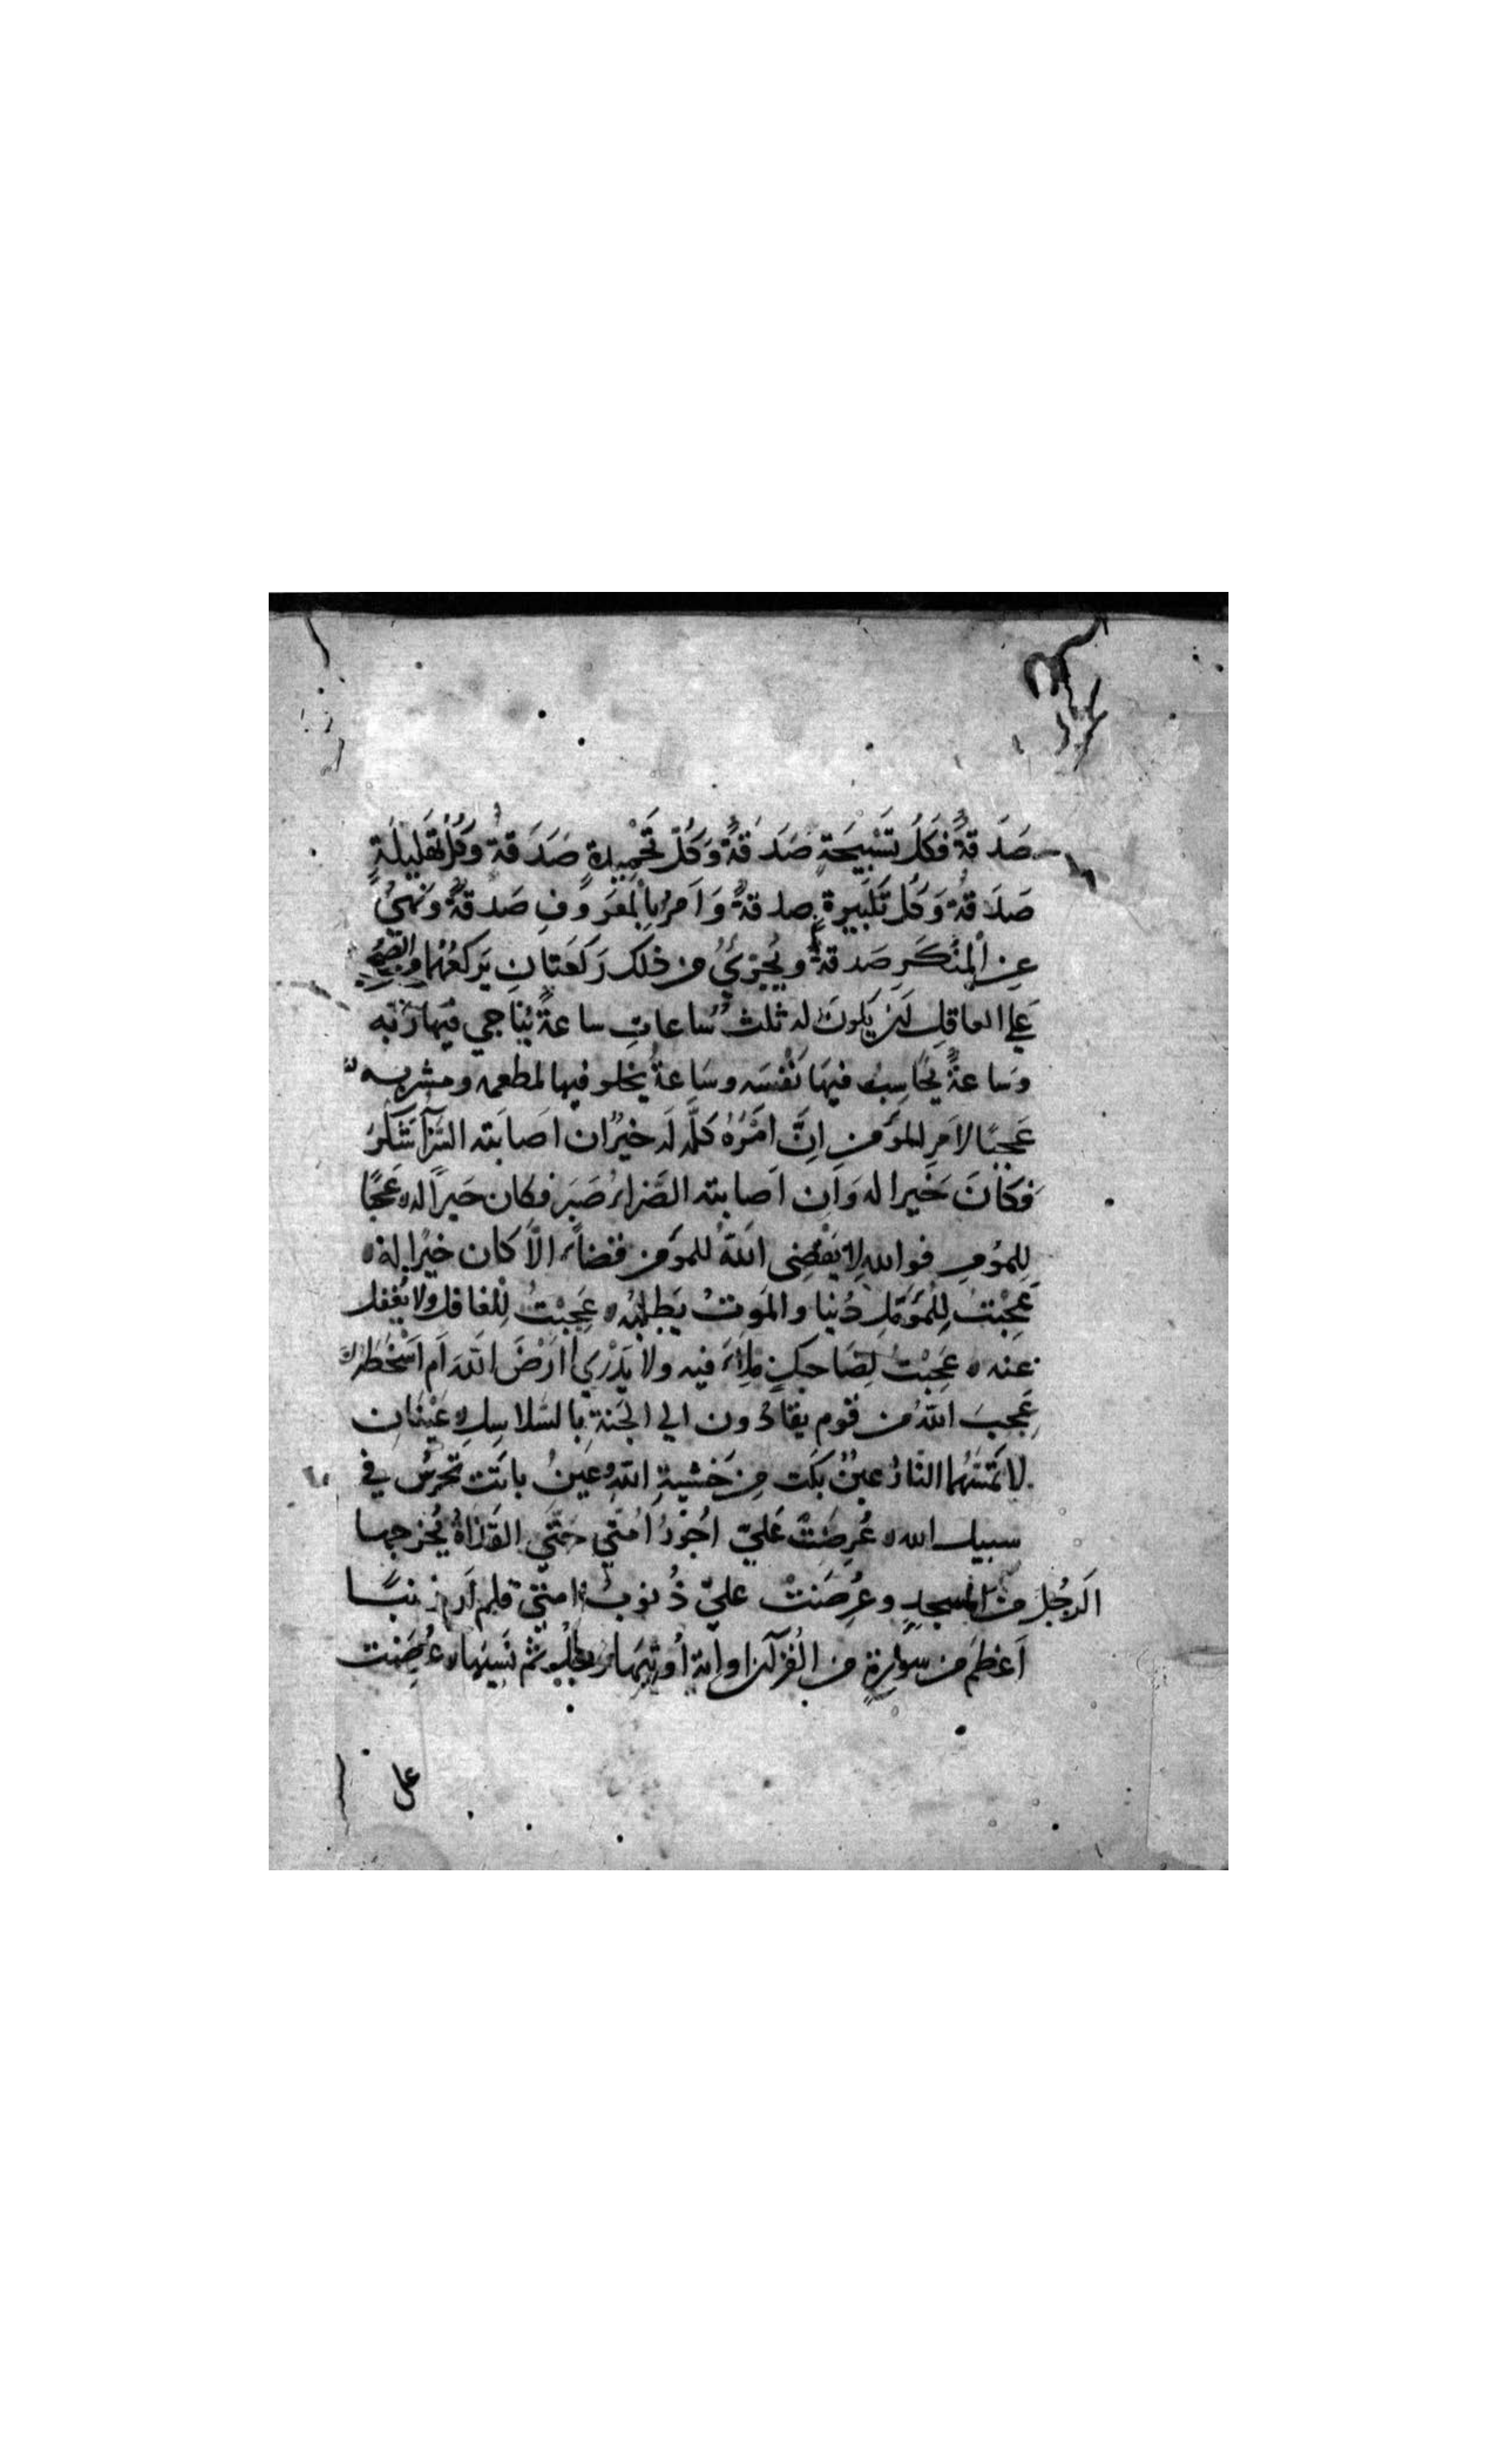 صَدَقةٌ فَكُلُّ تَسْبِيحَةٍ صَدَقةٌ وَكُلُّ تَحْمِيدةٍ صَدَقةٌ وَكُلُّ تَهْلِيلَةٍ
صَدَقةٌ وَكُلُّ تَكبِيرةٍ صدقةٌ وَاَمرٌ بِالْمَعرُوفِ صَدقةٌ ونَهْيٌ
عنِ الْمُنكَرِ صَدقةٌ ويُجزِئُ من ذلك رَكعَتانِ يَركعُهُمَا من الضحى
عَلى العاقِلِ اَن يَكونَ له ثلثُ سَاعاتٍ ساعةٌ يُناجي فيهَا رَبّه
وسَاعةٌ يُحَاسِبُ فيهَا نَفْسَه وسَاعةٌ يخلو فيها لمطعمه ومشربه
عَجبًا لاَمرِ المؤمنِ اِنَّ اَمْرَهُ كلَّه لَه خيرٌ ان اَصَابَته السَّرّآءُ شَكَرَ
فَكَانَ خَيرا له وَاِن اَصابته الضَّراءُ صَبَر فكان خيراً له عَجَبًا
لِلمؤمنِ فوالله لا يَقْضِى اللهُ للمؤمن قضاءً الاّ كان خيرًا له
عَجِبْتُ لِلْمُؤَمِّلِ دُنيا والمَوتُ يَطلبُه عَجِبْتُ لِلغافل ولا يُغْفل
عنه عَجِبْتُ لِضَاحكٍ مِلءَ فيه ولا يَدْري اَرْضَى اللهَ اَم اَسْخَطهُ
عَجِبَ اللهُ من قومٍ يقادُون الى الجَنةِ بالسَّلاسِلِ عَيْنَانِ
لا تَمَسُّهُما النّارُ عينٌ بَكَت مِن خَشْيةِ اللهِ وعَينٌ باتَت تَحرسُ في
سبيل الله عُرِضَتْ عَليّ اُجُورُ اُمَّتي حَتّى القَذَاةُ يُخرجها
الرَّجُل من المسجدِ وعُرِضَتْ عليّ ذُنوبُ امتي فلم اَر ذنبًا
اَعْظَم من سُورةٍ من القُرآن او آيةٍ اُوتيَهَا رجلٌ ثم نَسيَها عُرِضَت
على